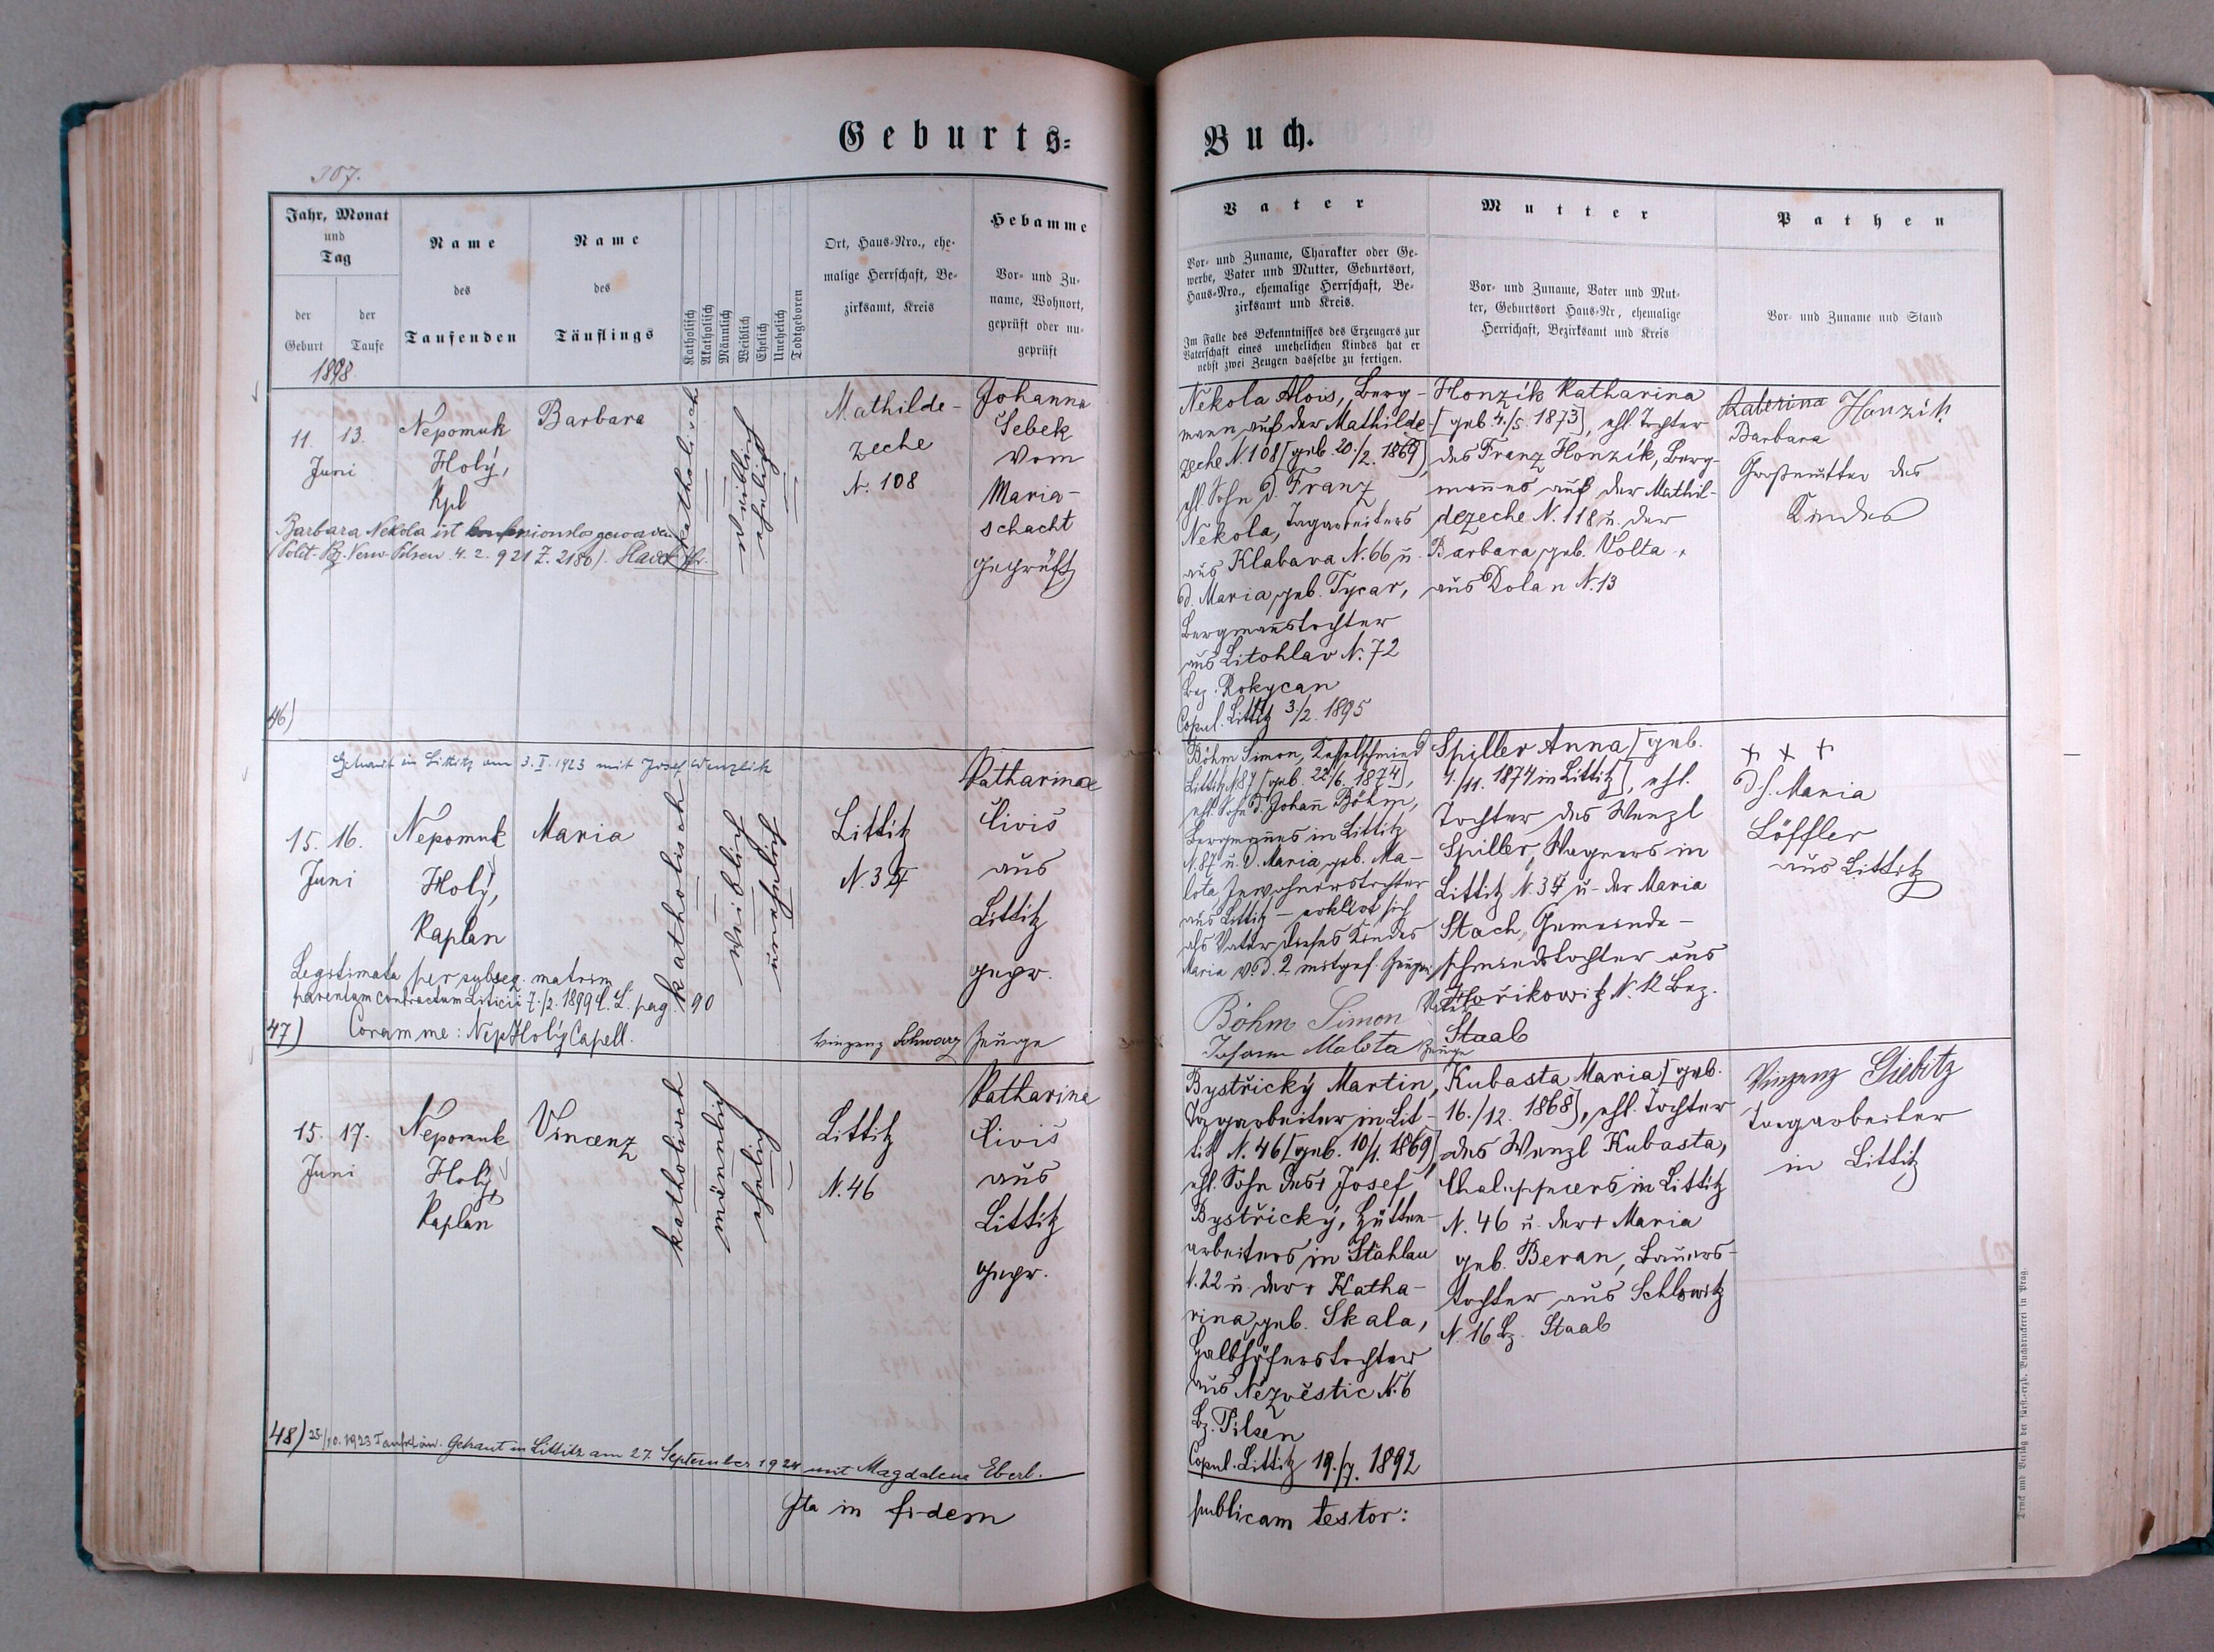 Geburts=
Buch.
307.
Jahr, Monat
und
Tag
der
Geburt
der
Taufe
1898.
Name
des
Taufenden
Name
des
Täuflings
Katholisch
Akatholisch
Männlich
Weiblich
Ehelich
Unehelich
Todtgeboren
Ort, Haus-Nro., ehe-
malige Herrschaft, Be-
zirksamt, Kreis
Hebamme
Vor- und Zu-
name, Wohnort,
geprüft oder un-
geprüft
Vater
Vor- und Zuname, Charakter oder Ge-
werbe, Vater und Mutter, Geburtsort,
Haus-Nro., ehemalige Herrschaft, Be-
zirksamt und Kreis.
Im Falle des Bekenntnisses des Erzeugers zur
Vaterschaft eines unehelichen Kindes hat er
nebst zwei Zeugen dasselbe zu fertigen.
Mutter
Vor- und Zuname, Vater und Mut-
ter, Geburtsort Haus-Nr, ehemalige
Herrschaft, Bezirksamt und Kreis
Pathen
Vor- und Zuname und Stand
11. 13.
Juni
Nepomuk
Holý,
Kpl
Barbara
katholisch
weiblich
ehelich
Mathilde-
zeche
N. 108
Johanna
Sebek
vom
Maria-
schacht
geprüft
Barbara Nekola ist konfessionslos geworden
(Polit. Bz. Verw. Pilsen 4. 2. 921 Z. 2186).
46)
Nekola Alois, Berg-
mann auf der Mathilde
zeche N. 108 [geb. 20./2. 1869],
ehl. Sohn d. Franz
Nekola, Tagarbeiters
aus Klabava N. 66 u.
d. Maria, geb. Tycar,
Bergmannstochter
aus Litohlav N. 72
Bez. Rokycan
Copul. Littitz 3./2. 1895
Honzík Katharina
[geb. 4./5. 1873], ehl. Tochter
des Franz Honzík, Berg-
mannes auf der Mathil-
dezeche N. 118 u. der
Barbara, geb. Volta
aus Dolan N. 13
Katerina Honzik
Barbara
Großmutter des
Kindes
Getraut in Littitz am 3. II. 1923 mit Josef Wenzlik
15. 16.
Juni
Nepomuk
Holý,
Kaplan
Maria
katholisch
weiblich
unehelich
Littitz
N. 34
Katharina
Civis
aus
Littitz
gepr.
Legitimata per subseq. matrim.
parentum contractum Liticii 7./2. 1899 l. L. pag. 90
47) Coram me: Nep Holý Capell.
Vinzenz Schwarz Zeuge
Böhm Simon, Kesselschmied
Littitz N. 87 [geb. 22./6. 1874],
ehl. Sohn d. Johann Böhm,
Bergmannes in Littitz
N. 87 u. d. Maria geb. Ma-
lota, Inwohnerstochter
aus Littitz - erklärt sich
als Vater dieses Kindes
Maria v. d. 2 mitgef. Zeugen
Böhm Simon Vater
Johann Malota Zeuge
Spiller Anna [geb.
4./11. 1874 in Littitz], ehl.
Tochter des Wenzl
Spiller, Wagners in
Littitz N. 34 u. der Maria
Stach, Gemeinde-
schmiedstochter aus
Hořikowitz N. 12 Bez.
Staab
+ + +
d. s. Maria
Löffler
aus Littitz
15. 17.
Juni
Nepomuk
Holý
Kaplan
Vincenz
katholisch
männlich
ehelich
Littitz
N. 46
Katharina
Civis
aus
Littitz
gepr.
Bystřický Martin,
Tagarbeiter in Lit-
titz N. 46 [geb. 10/1. 1869],
ehl. Sohn des + Josef
Bystřický, Hütten-
arbeiters in Stahlau
N. 22 u. der + Katha-
rina, geb. Skala,
Halbhöferstochter
aus Nězvěstic N. 6
Bz. Pilsen
Copul. Littitz 19./7. 1892
Kubasta Maria [geb.
16./12. 1868], ehl. Tochter
des Wenzl Kubasta,
Chaluppners in Littitz
N. 46 u. der + Maria
geb. Beran, Bauers-
tochter aus Schlowitz
N. 16 Bz. Staab
Vinzenz Siebitz
Tagarbeiter
in Littitz
48) 25./10. 1923 Getraut in Littitz am 27. September 1924 mit Magdalena Eberl.
Ita in fidem
publicam testor:
Druck und Verlag der fürst-erzb. Buchdruckerei in Prag.